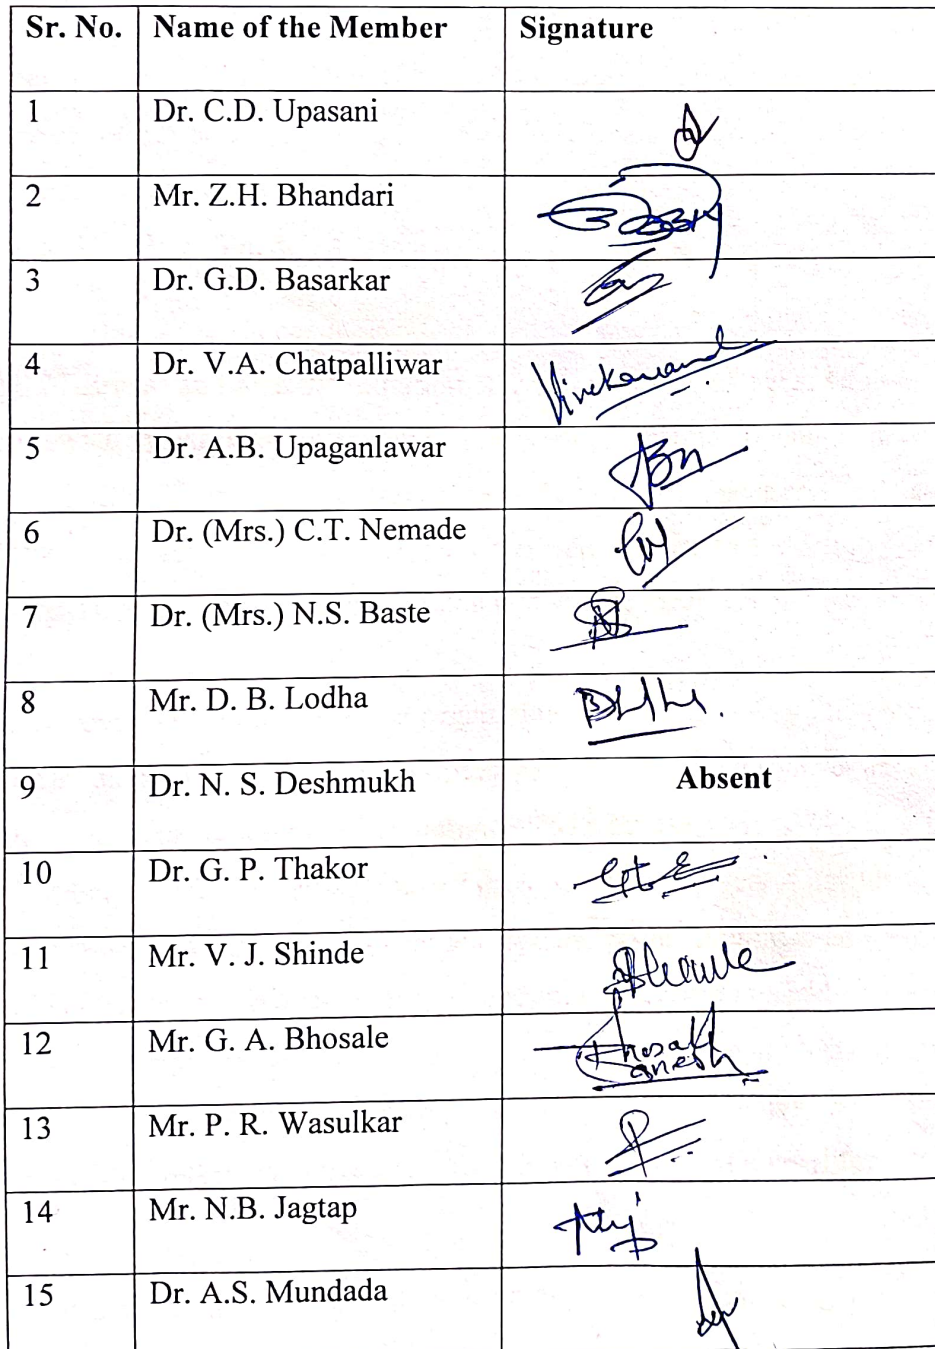 Sr. No. Name of the Member Signature
1 Dr. C.D. Upasani
2 Mr. Z.H. Bhandari
3 Dr. G.D. Basarkar
4 Dr. V.A. Chatpalliwar Vivekanand
5 Dr. A.B. Upaganlawar
6 Dr. (Mrs.) C.T. Nemade
7 Dr. (Mrs.) N.S. Baste
8 Mr. D. B. Lodha
9 Dr. N. S. Deshmukh Absent
10 Dr. G. P. Thakor
11 Mr. V. J. Shinde
12 Mr. G. A. Bhosale
13 Mr. P. R. Wasulkar
14 Mr. N.B. Jagtap
15 Dr. A.S. Mundada